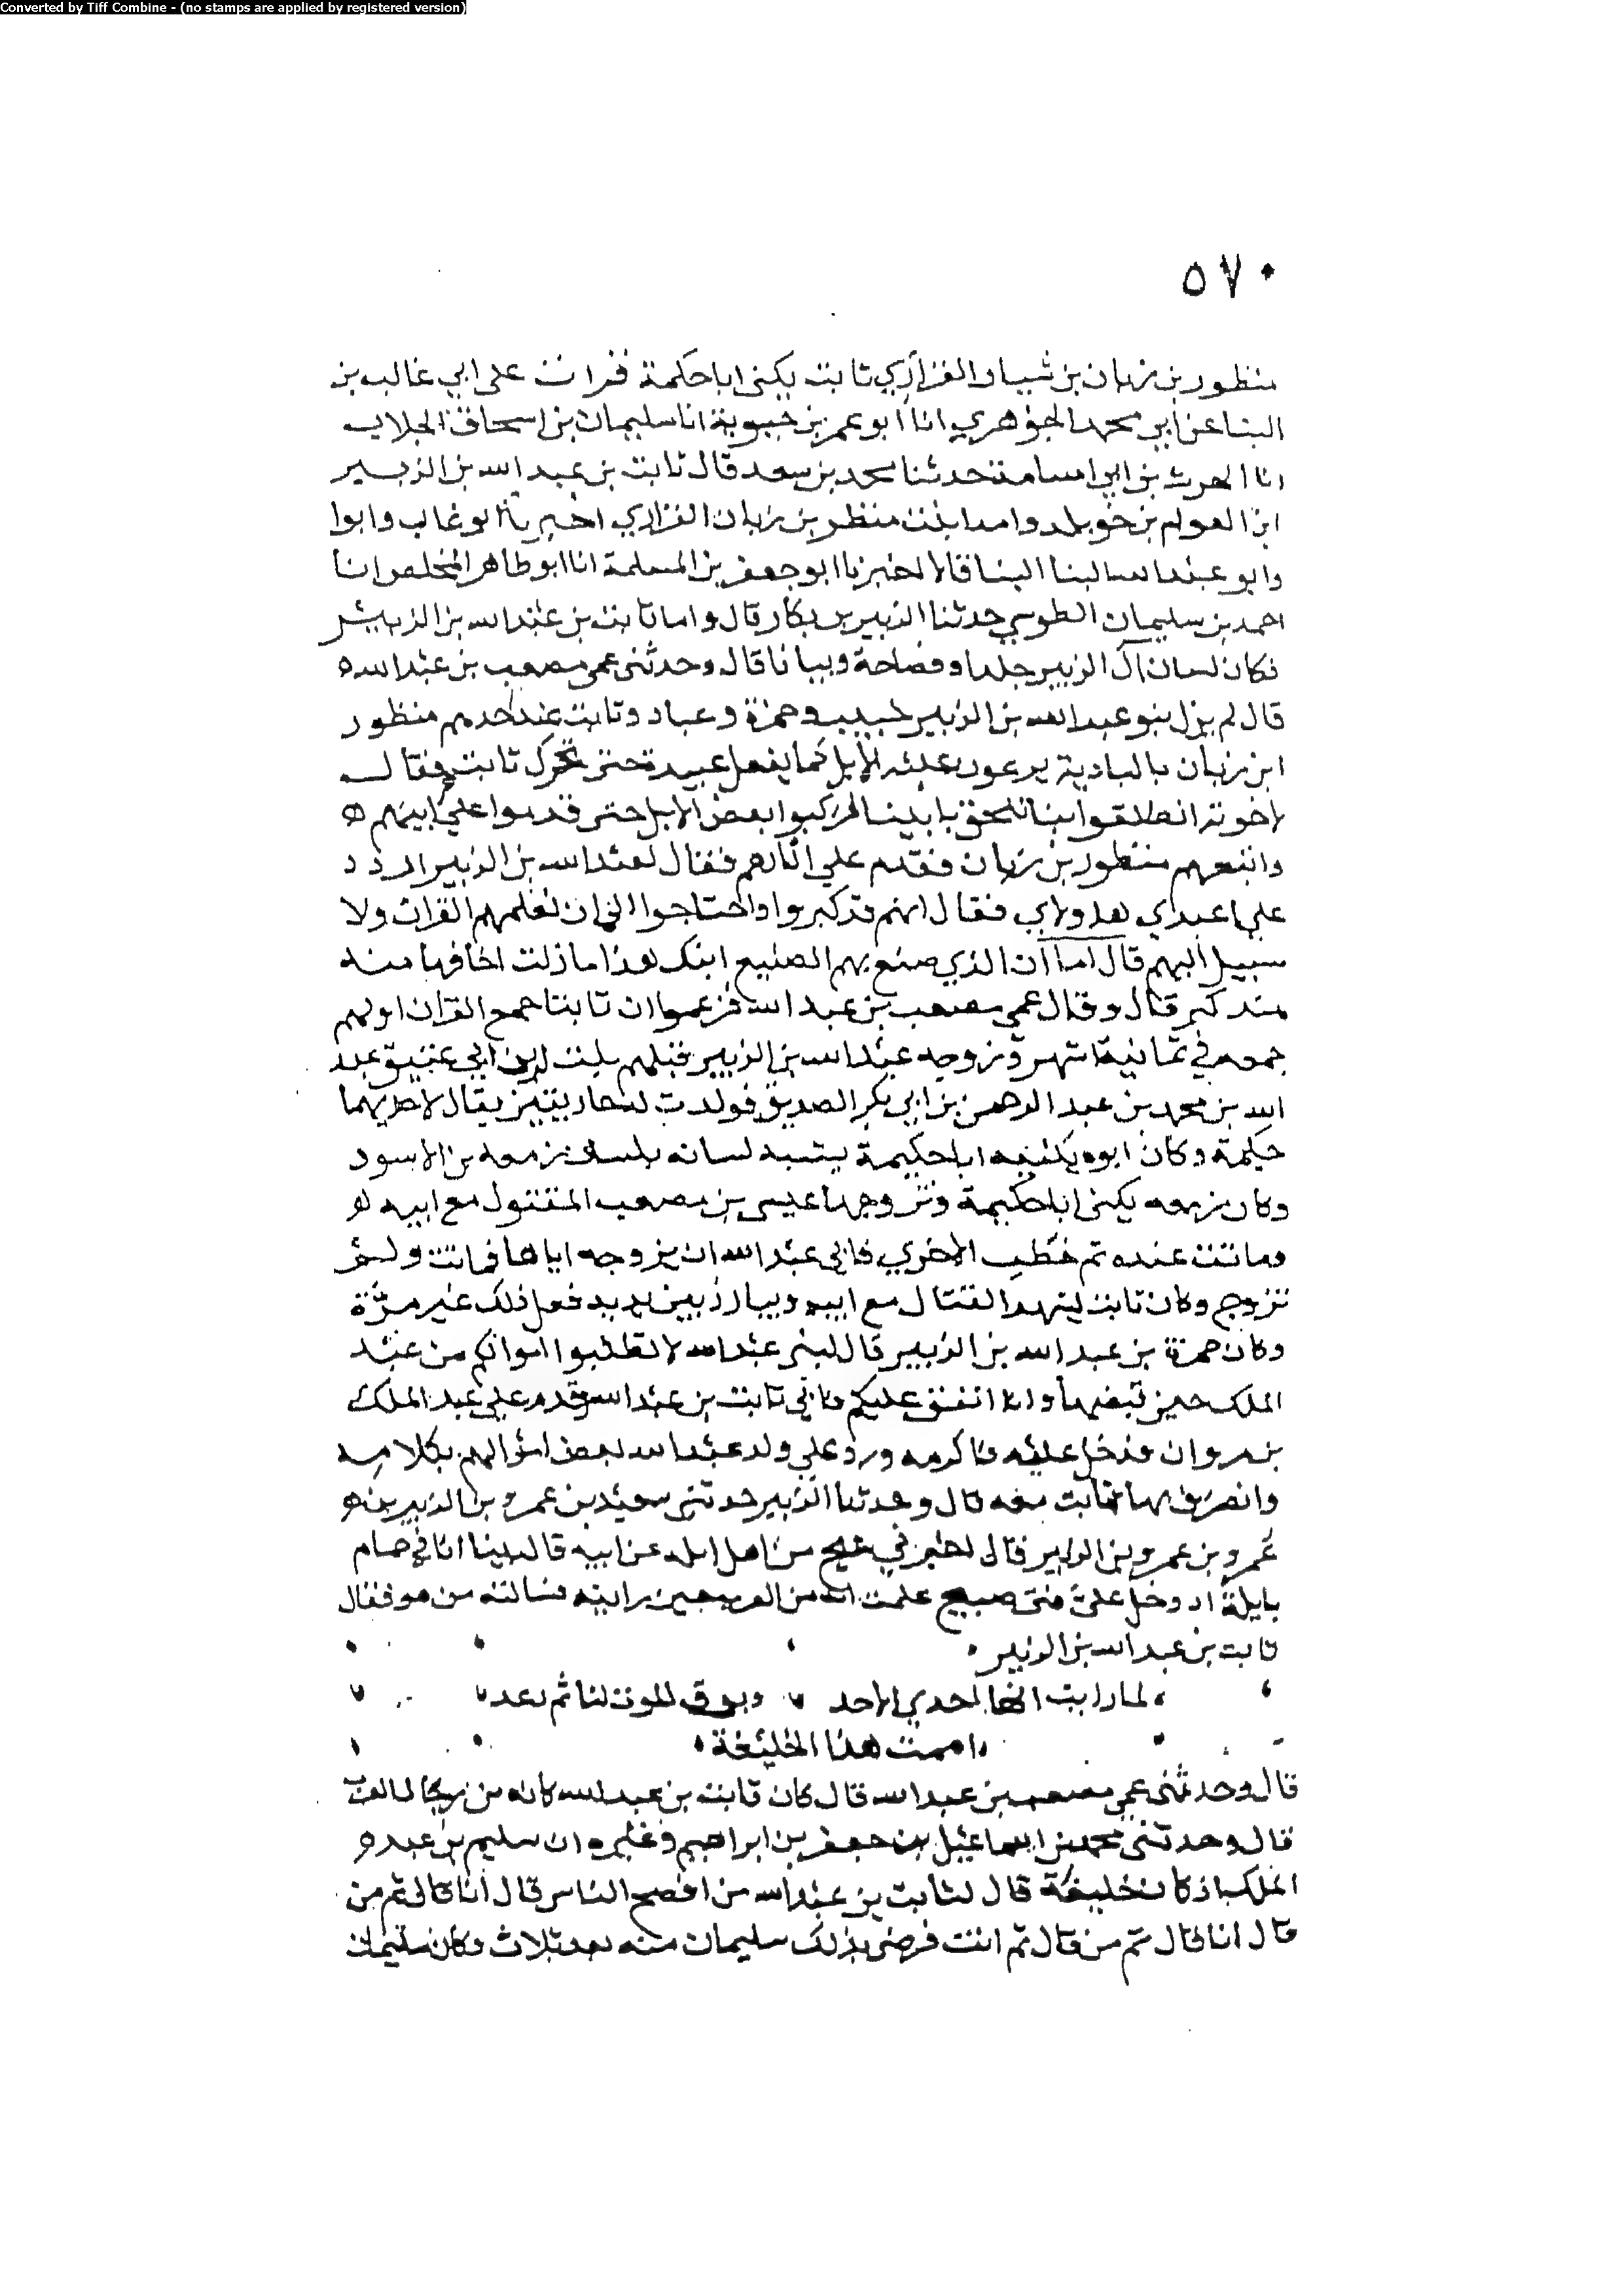 Converted by Tiff Combine - (no stamps are applied by registered version)
٥٧٠
منظور بن زبان بن سيار الفزاري ثابت يكنى ابا حكمة قرات على ابي غالب بن
البنا عن ابي محمد الجوهري انا ابو عمر بن حيوية انا سليمان بن اسحاق الجلاب
انا الحرث بن ابي اسامة حدثنا محمد بن سعد قال ثابت بن عبد الله بن الزبير
ابن العوام بن خويلد وامه ابنت منظور بن زبان الفزاري اخبرنا ابو غالب وابوا
وابو عبد الله البنا قالا اخبرنا ابو جعفر بن المسلمة انا ابو طاهر المخلص انا
احمد بن سليمان الطوسي حدثنا الزبير بن بكار قال واما ثابت بن عبد الله بن الزبير
فكان لسان آل الزبير جلدا وفصاحة وبيانا قال وحدثني عمي مصعب بن عبد الله
قال لم يزل بنو عبد الله بن الزبير خبيب وحمزة وعباد وثابت عند جدهم منظور
ابن زبان بالبادية يرعون عليه الابل كما يفعل عبيده حتى تحرك ثابت فقال
لاخوته انطلقوا بنا نلحق بابينا فركبوا بعض الابل حتى قدموا على ابيهم
واتبعهم منظور بن زبان فقدم على اثارهم فقال لعبد الله بن الزبير اردد
علي اعبدي هولاي فقال انهم قد كبروا واحتاجوا الى ان نعلمهم القران ولا
سبيل اليهم قال اما ان الذي صنع بهم الصنيع ابنك هذا ما زلت اخافها منه
منذ كبر قال وقال عمي مصعب بن عبد الله فزعموا ان ثابتا جمع القران اولهم
جمعه في ثمانية اشهر وزوجه عبد الله بن الزبير قبلهم بنت ابن ابي عتيق عبد
الله بن محمد بن عبد الرحمن بن ابي بكر الصديق فولدت له جاريتين يقال لاحديهما
حكيمة وكان ابوه يكنيه ابا حكيمة يشبه لسانه بلسان زمعه بن الاسود
وكان زمعه يكنى ابا حكيمة وتزوجها عيسى بن مصعب المقتول مع ابيه
وماتت عنده ثم خطب الاخرى فابى عبد الله ان يزوجه اياها فماتت ولم
تتزوج وكان ثابت يشهد القتال مع ابيه ويبارز بين يديه فعل ذلك غير مرة
وكان حمزة بن عبد الله بن الزبير قال لبني عبد الله لا تطلبوا اموالكم من عبد
الملك حين قبضها وانا انفق عليكم فابى ثابت بن عبد الله وقدم على عبد الملك
بن مروان فدخل عليه فاكرمه ورد على ولد عبد الله بعض اموالهم بكلامه
وانصرف بها ثابت معه قال وحدثنا الزبير حدثني سعيد بن عمرو بن الزبير بن
عمرو بن عمرو بن الزبير قال اخبرني شيخ من اهل ايله عن ابيه قال بينا انا في حمام
بايلة اذ دخل علي فتى صبيح علمت انه من العرب حين رايته فسالته من هو فقال
ثابت بن عبد الله بن الزبير
لما رايت انها احدي الاحد وبرق الموت لنا ثم رعد
اممت هذا الخليفة
قال وحدثني عمي مصعب بن عبد الله قال كان ثابت بن عبد الله كانه من رجال العرب
قال وحدثني محمد بن اسماعيل بن جعفر بن ابراهيم وغيره ان سليم بن عبد
الملك اذ كان خليفة قال لثابت بن عبد الله من افصح الناس قال انا قال ثم من
قال انا قال ثم من قال ثم انت فرضي بذلك سليمان منه بعد ثلاث وكان سليمان